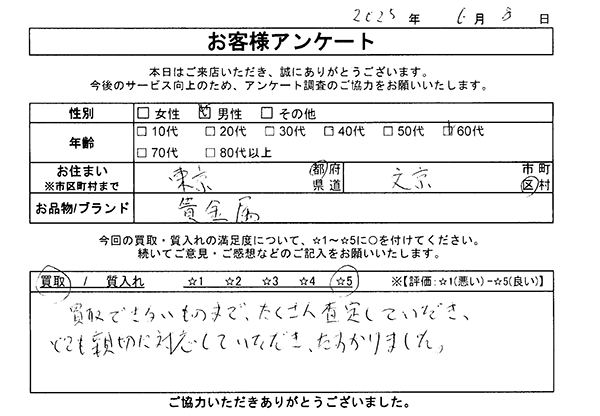 2025年 6月 8日
お客様アンケート
本日はご来店いただき、誠にありがとうございます。
今後のサービス向上のため、アンケート調査のご協力をお願いいたします。
性別 □ 女性 ☑ 男性 □ その他
年齢 □ 10代 □ 20代 □ 30代 □ 40代 □ 50代 ☑ 60代
□ 70代 □ 80代以上
お住まい ※市区町村まで 東京 都府県道 文京 市町区村
お品物/ブランド 貴金属
今回の買取・質入れの満足度について、☆1～☆5に○を付けてください。
続いてご意見・ご感想などのご記入をお願いいたします。
買取 / 質入れ ☆1 ☆2 ☆3 ☆4 ☆5 ※【評価:☆1(悪い)−☆5(良い)】
買取できないものまで、たくさん査定していただき、
とても親切に対応していただき、たすかりました。
ご協力いただきありがとうございました。